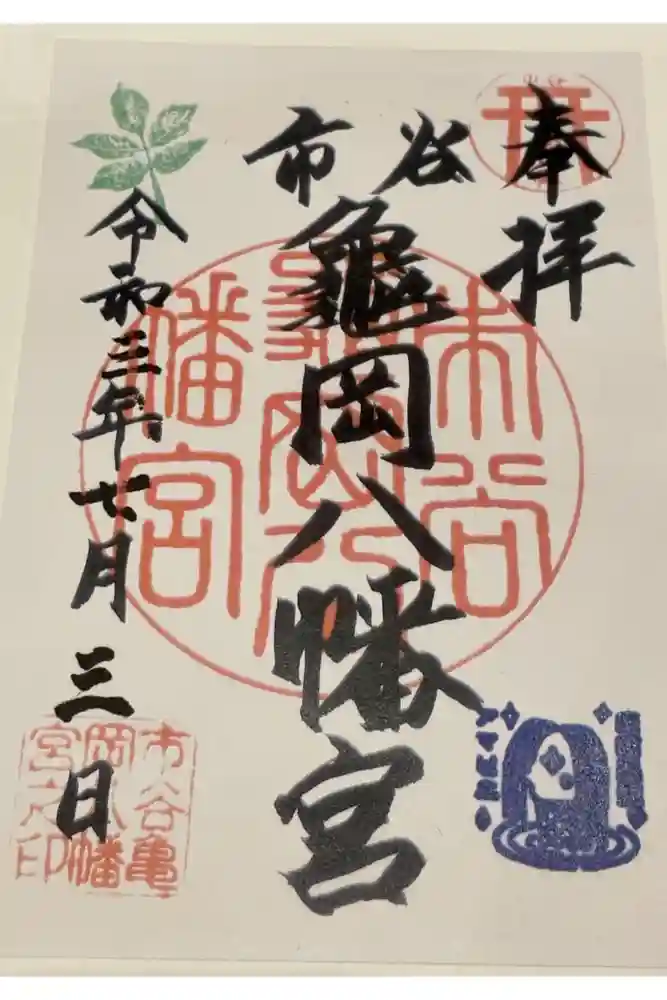 奉拝
市谷
龜岡八幡宮
令和三年七月三日
市谷
亀岡八
幡宮
市谷亀
岡八幡
宮之印